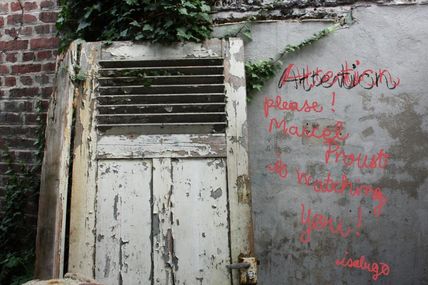 Attention
please!
Marcel
Proust
is watching
You!
isalugo